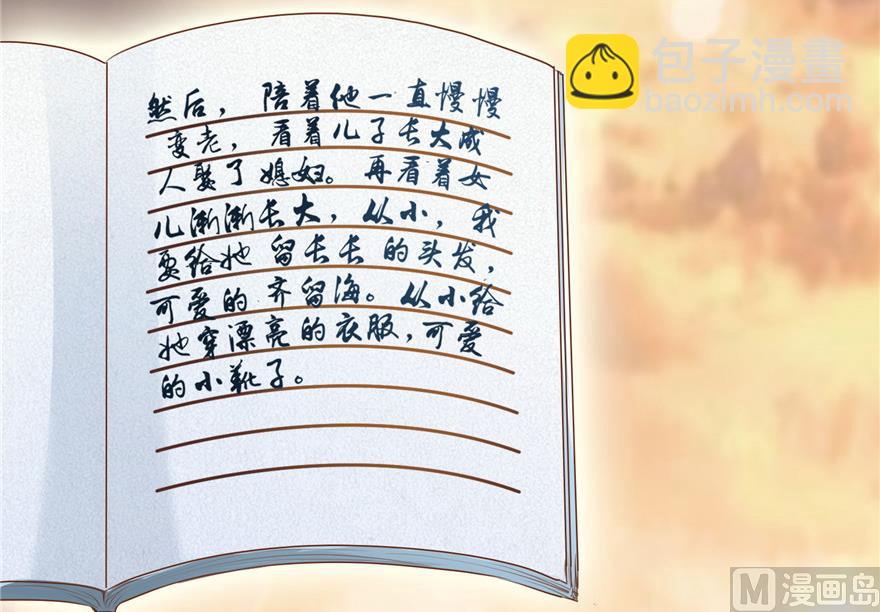 然后，陪着他一直慢慢
变老，看着儿子长大成
人娶了媳妇。再看着女
儿渐渐长大，从小，我
要给她留长长的头发，
可爱的齐留海。从小给
她穿漂亮的衣服，可爱
的小靴子。
包子漫畫
baozimh.com
M 漫画岛